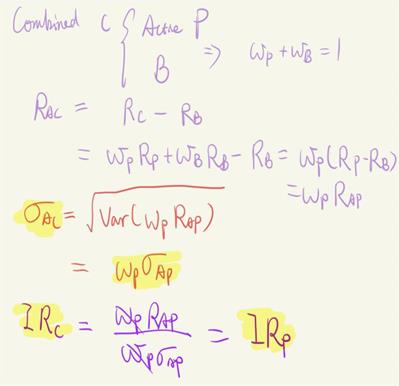 Combined C { Active P
B ⇒ ωp + ωB = 1
RAC = RC − RB
= ωp Rp + ωB RB − RB = ωp (Rp − RB)
= ωp RAP
σAC = √Var(ωp RAP)
= ωp σAP
IRC = ωp RAP / ωp σAP = IRp